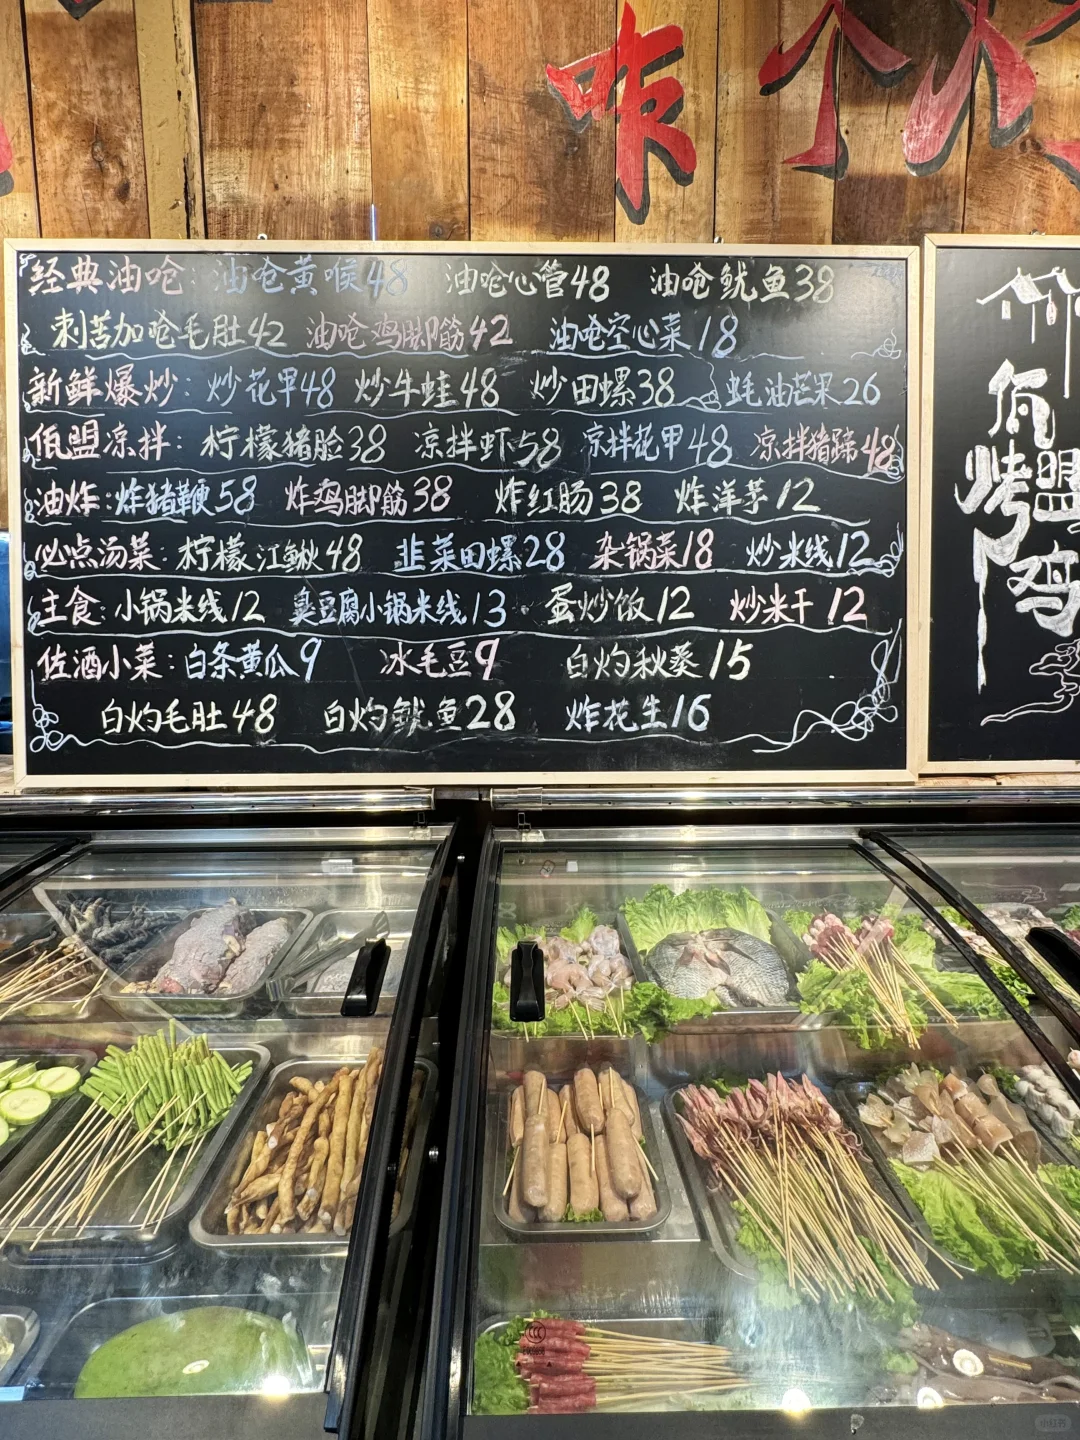 咋个
经典油呛:油呛黄喉48 油呛心管48 油呛鱿鱼38
刺苦加呛毛肚42 油呛鸡脚筋42 油呛空心菜18
新鲜爆炒:炒花甲48 炒牛蛙48 炒田螺38 蚝油芒果26
佤盟凉拌:柠檬猪脸38 凉拌虾58 凉拌花甲48 凉拌猪蹄48
油炸:炸猪鞭58 炸鸡脚筋38 炸红肠38 炸洋芋12
必点汤菜:柠檬江鳅48 韭菜田螺28 杂锅菜18 炒米线12
主食:小锅米线12 臭豆腐小锅米线13 蛋炒饭12 炒米干12
佐酒小菜:白条黄瓜9 冰毛豆9 白灼秋葵15
白灼毛肚48 白灼鱿鱼28 炸花生16
佤盟
烤鸡
小红书